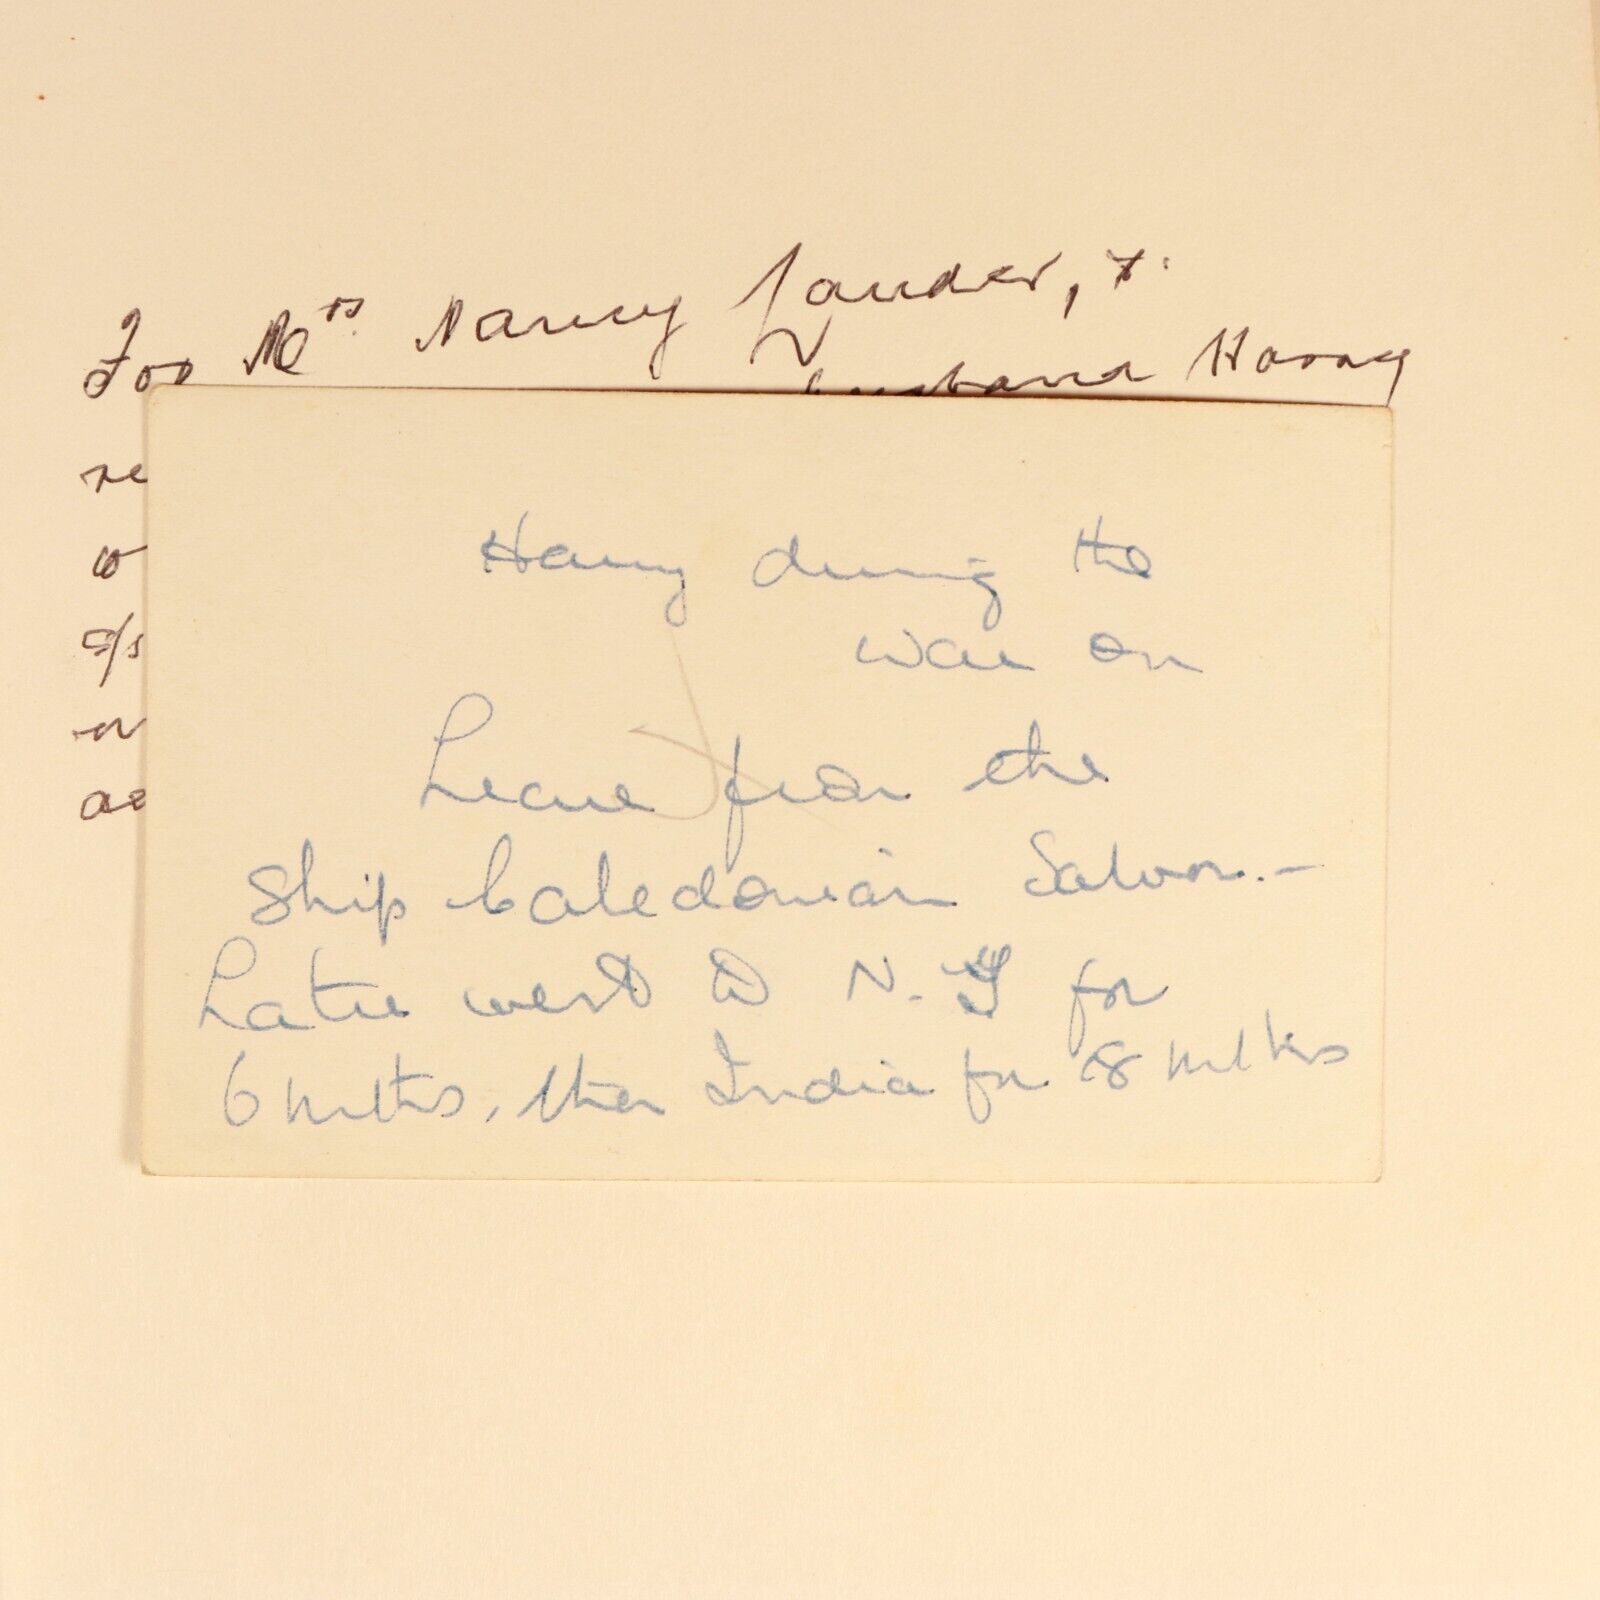 For Mrs. Nancy Lauder, &
husband Harry
re
w
s/s
Harry during the
War on
Leave from the
Ship Caledonian Salvor.-
Later went to N.Y for
6 mths, then India for 8 mths